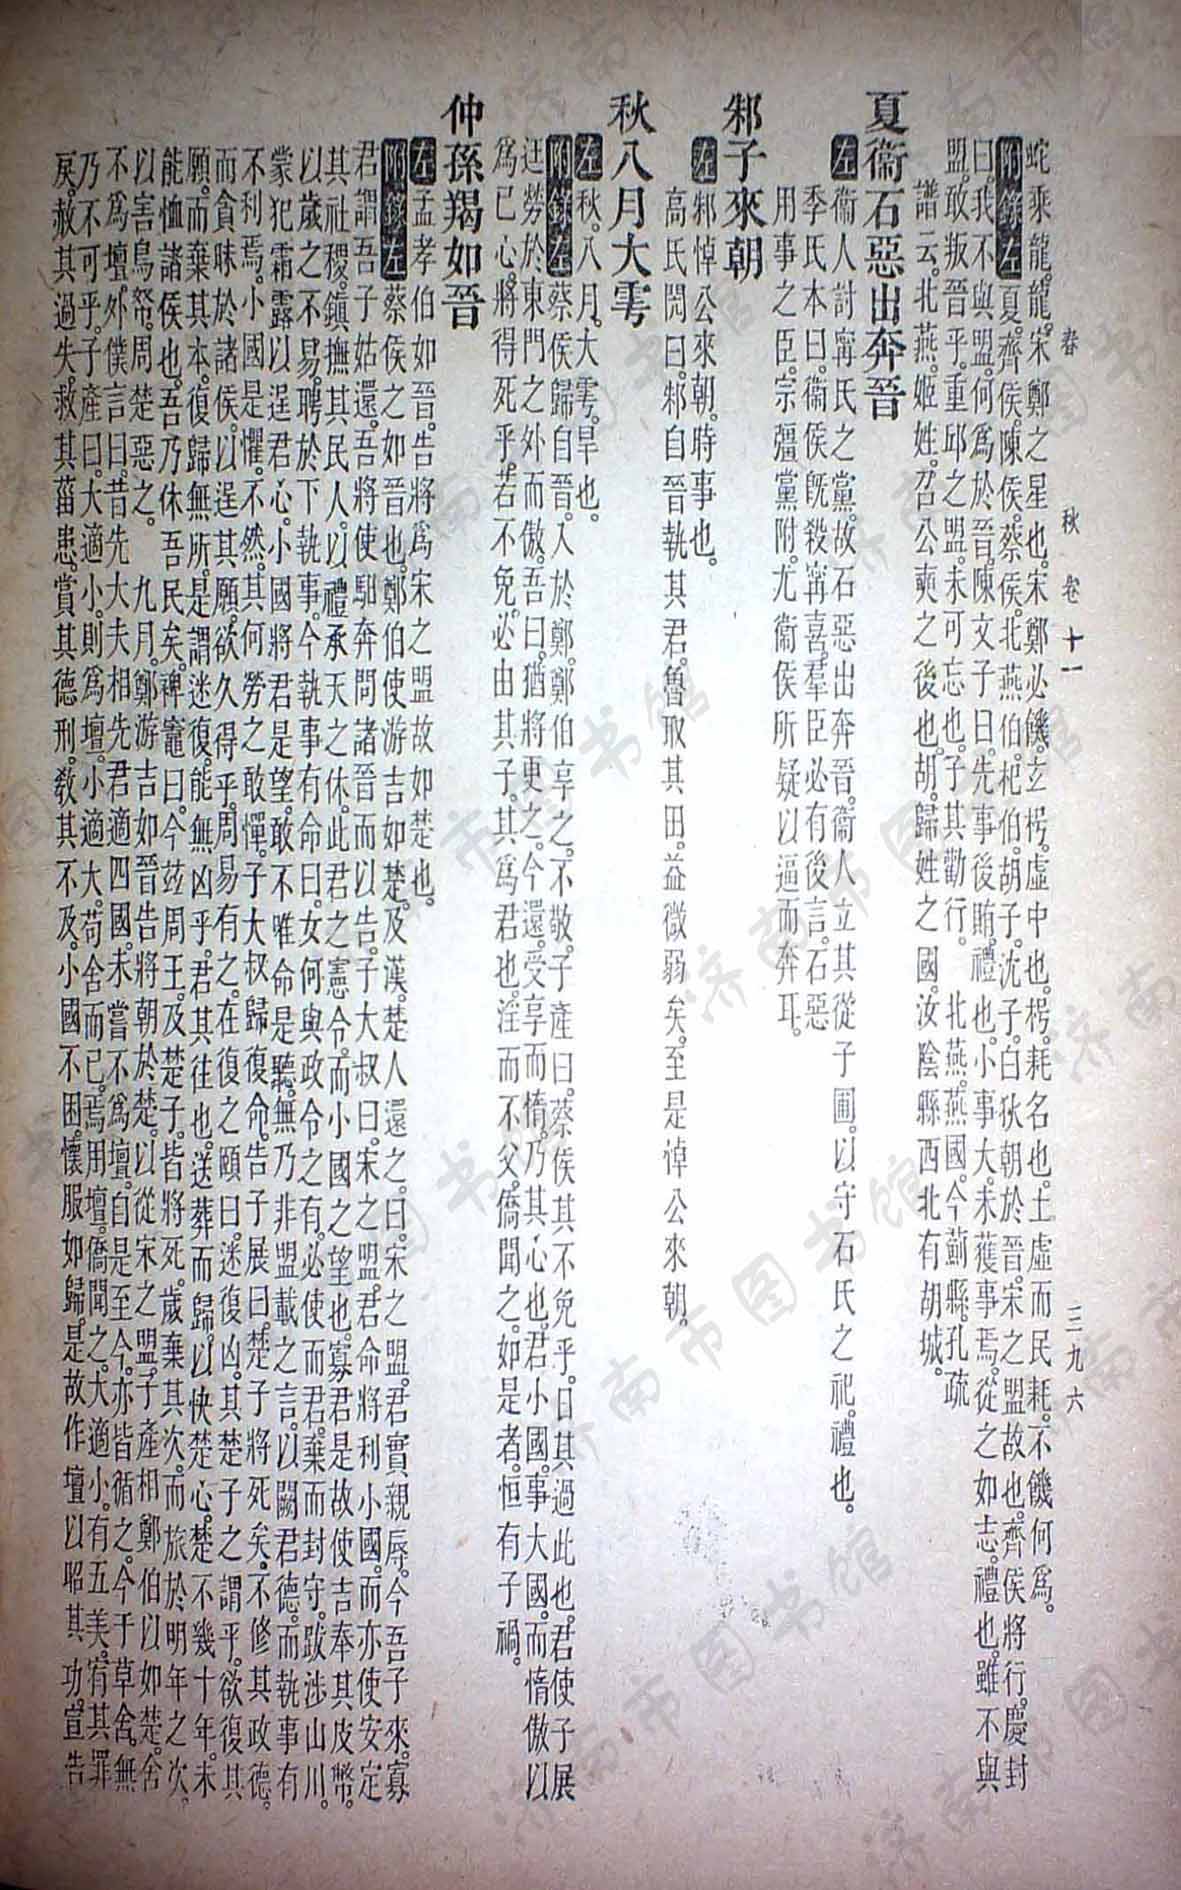 春　秋　卷十一　三九六
蛇乘龍。龍。宋鄭之星也。宋鄭必饑。玄枵。虛中也。枵。耗名也。土虛而民耗。不饑何爲。
附錄左夏。齊侯。陳侯。蔡侯。北燕伯。杞伯。胡子。沈子。白狄朝於晉。宋之盟故也。齊侯將行。慶封
曰。我不與盟。何爲於晉。陳文子曰。先事後賄。禮也。小事大。未獲事焉。從之如志。禮也。雖不與
盟。敢叛晉乎。重邱之盟。未可忘也。子其勸行。　北燕。燕國。今薊縣。孔疏
譜云。北燕。姬姓。召公奭之後也。胡。歸姓之國。汝陰縣西北有胡城。
夏衞石惡出奔晉
左衞人討甯氏之黨。故石惡出奔晉。衞人立其從子圃。以守石氏之祀。禮也。
季氏本曰。衞侯旣殺甯喜。羣臣必有後言。石惡
用事之臣。宗彊黨附。尤衞侯所疑以逼而奔耳。
邾子來朝
左邾悼公來朝。時事也。
高氏閌曰。邾自晉執其君。魯取其田。益微弱矣。至是悼公來朝。
秋八月大雩
左秋。八月。大雩。旱也。
附錄左蔡侯歸自晉。入於鄭。鄭伯享之。不敬。子產曰。蔡侯其不免乎。日其過此也。君使子展
迋勞於東門之外。而傲。吾曰。猶將更之。今還。受享而惰。乃其心也。君小國。事大國。而惰傲以
爲己心。將得死乎。若不免。必由其子。其爲君也。淫而不父。僑聞之。如是者。恒有子禍。
仲孫羯如晉
左孟孝伯如晉。告將爲宋之盟故如楚也。
附錄左蔡侯之如晉也。鄭伯使游吉如楚。及漢。楚人還之。曰。宋之盟。君實親辱。今吾子來。寡
君謂吾子姑還。吾將使馹奔問諸晉而以告。子大叔曰。宋之盟。君命將利小國。而亦使安定
其社稷。鎮撫其民人。以禮承天之休。此君之憲令。而小國之望也。寡君是故使吉奉其皮幣。
以歲之不易。聘於下執事。今執事有命曰。女何與政令之有。必使而君。棄而封守。跋涉山川。
蒙犯霜露以逞君心。小國將君是望。敢不唯命是聽。無乃非盟載之言。以闕君德。而執事有
不利焉。小國是懼。不然。其何勞之敢憚。子大叔歸復命。告子展曰。楚子將死矣。不修其政德。
而貪昧於諸侯。以逞其願。欲久得乎。周易有之。在復之頤曰。迷復凶。其楚子之謂乎。欲復其
願。而棄其本。復歸無所。是謂迷復。能無凶乎。君其往也。送葬而歸。以快楚心。楚不幾十年。未
能恤諸侯也。吾乃休吾民矣。裨竈曰。今玆周王。及楚子。皆將死。歲棄其次。而旅於明年之次。
以害鳥帑。周楚惡之。　九月。鄭游吉如晉。告將朝於楚。以從宋之盟。子產相鄭伯以如楚。舍
不爲壇。外僕言曰。昔先大夫相先君適四國。未嘗不爲壇。自是至今。亦皆循之。今子草舍。無
乃不可乎。子產曰。大適小。則爲壇。小適大。苟舍而已。焉用壇。僑聞之。大適小。有五美。宥其罪
戾。赦其過失。救其菑患。賞其德刑。敎其不及。小國不困。懷服如歸。是故作壇以昭其功。宣告